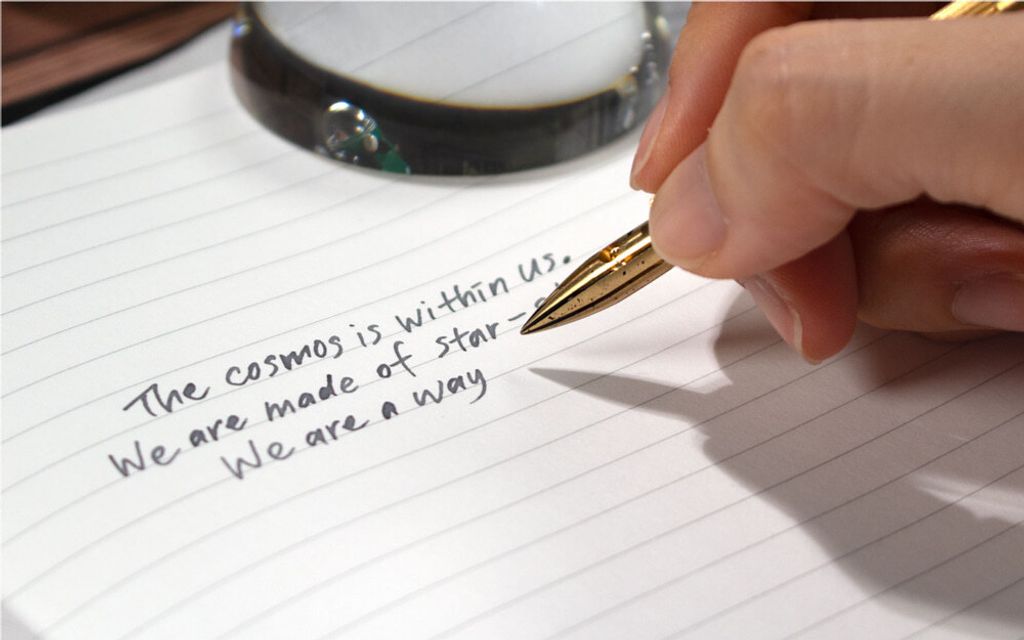 The cosmos is within us.
We are made of star-
We are a way